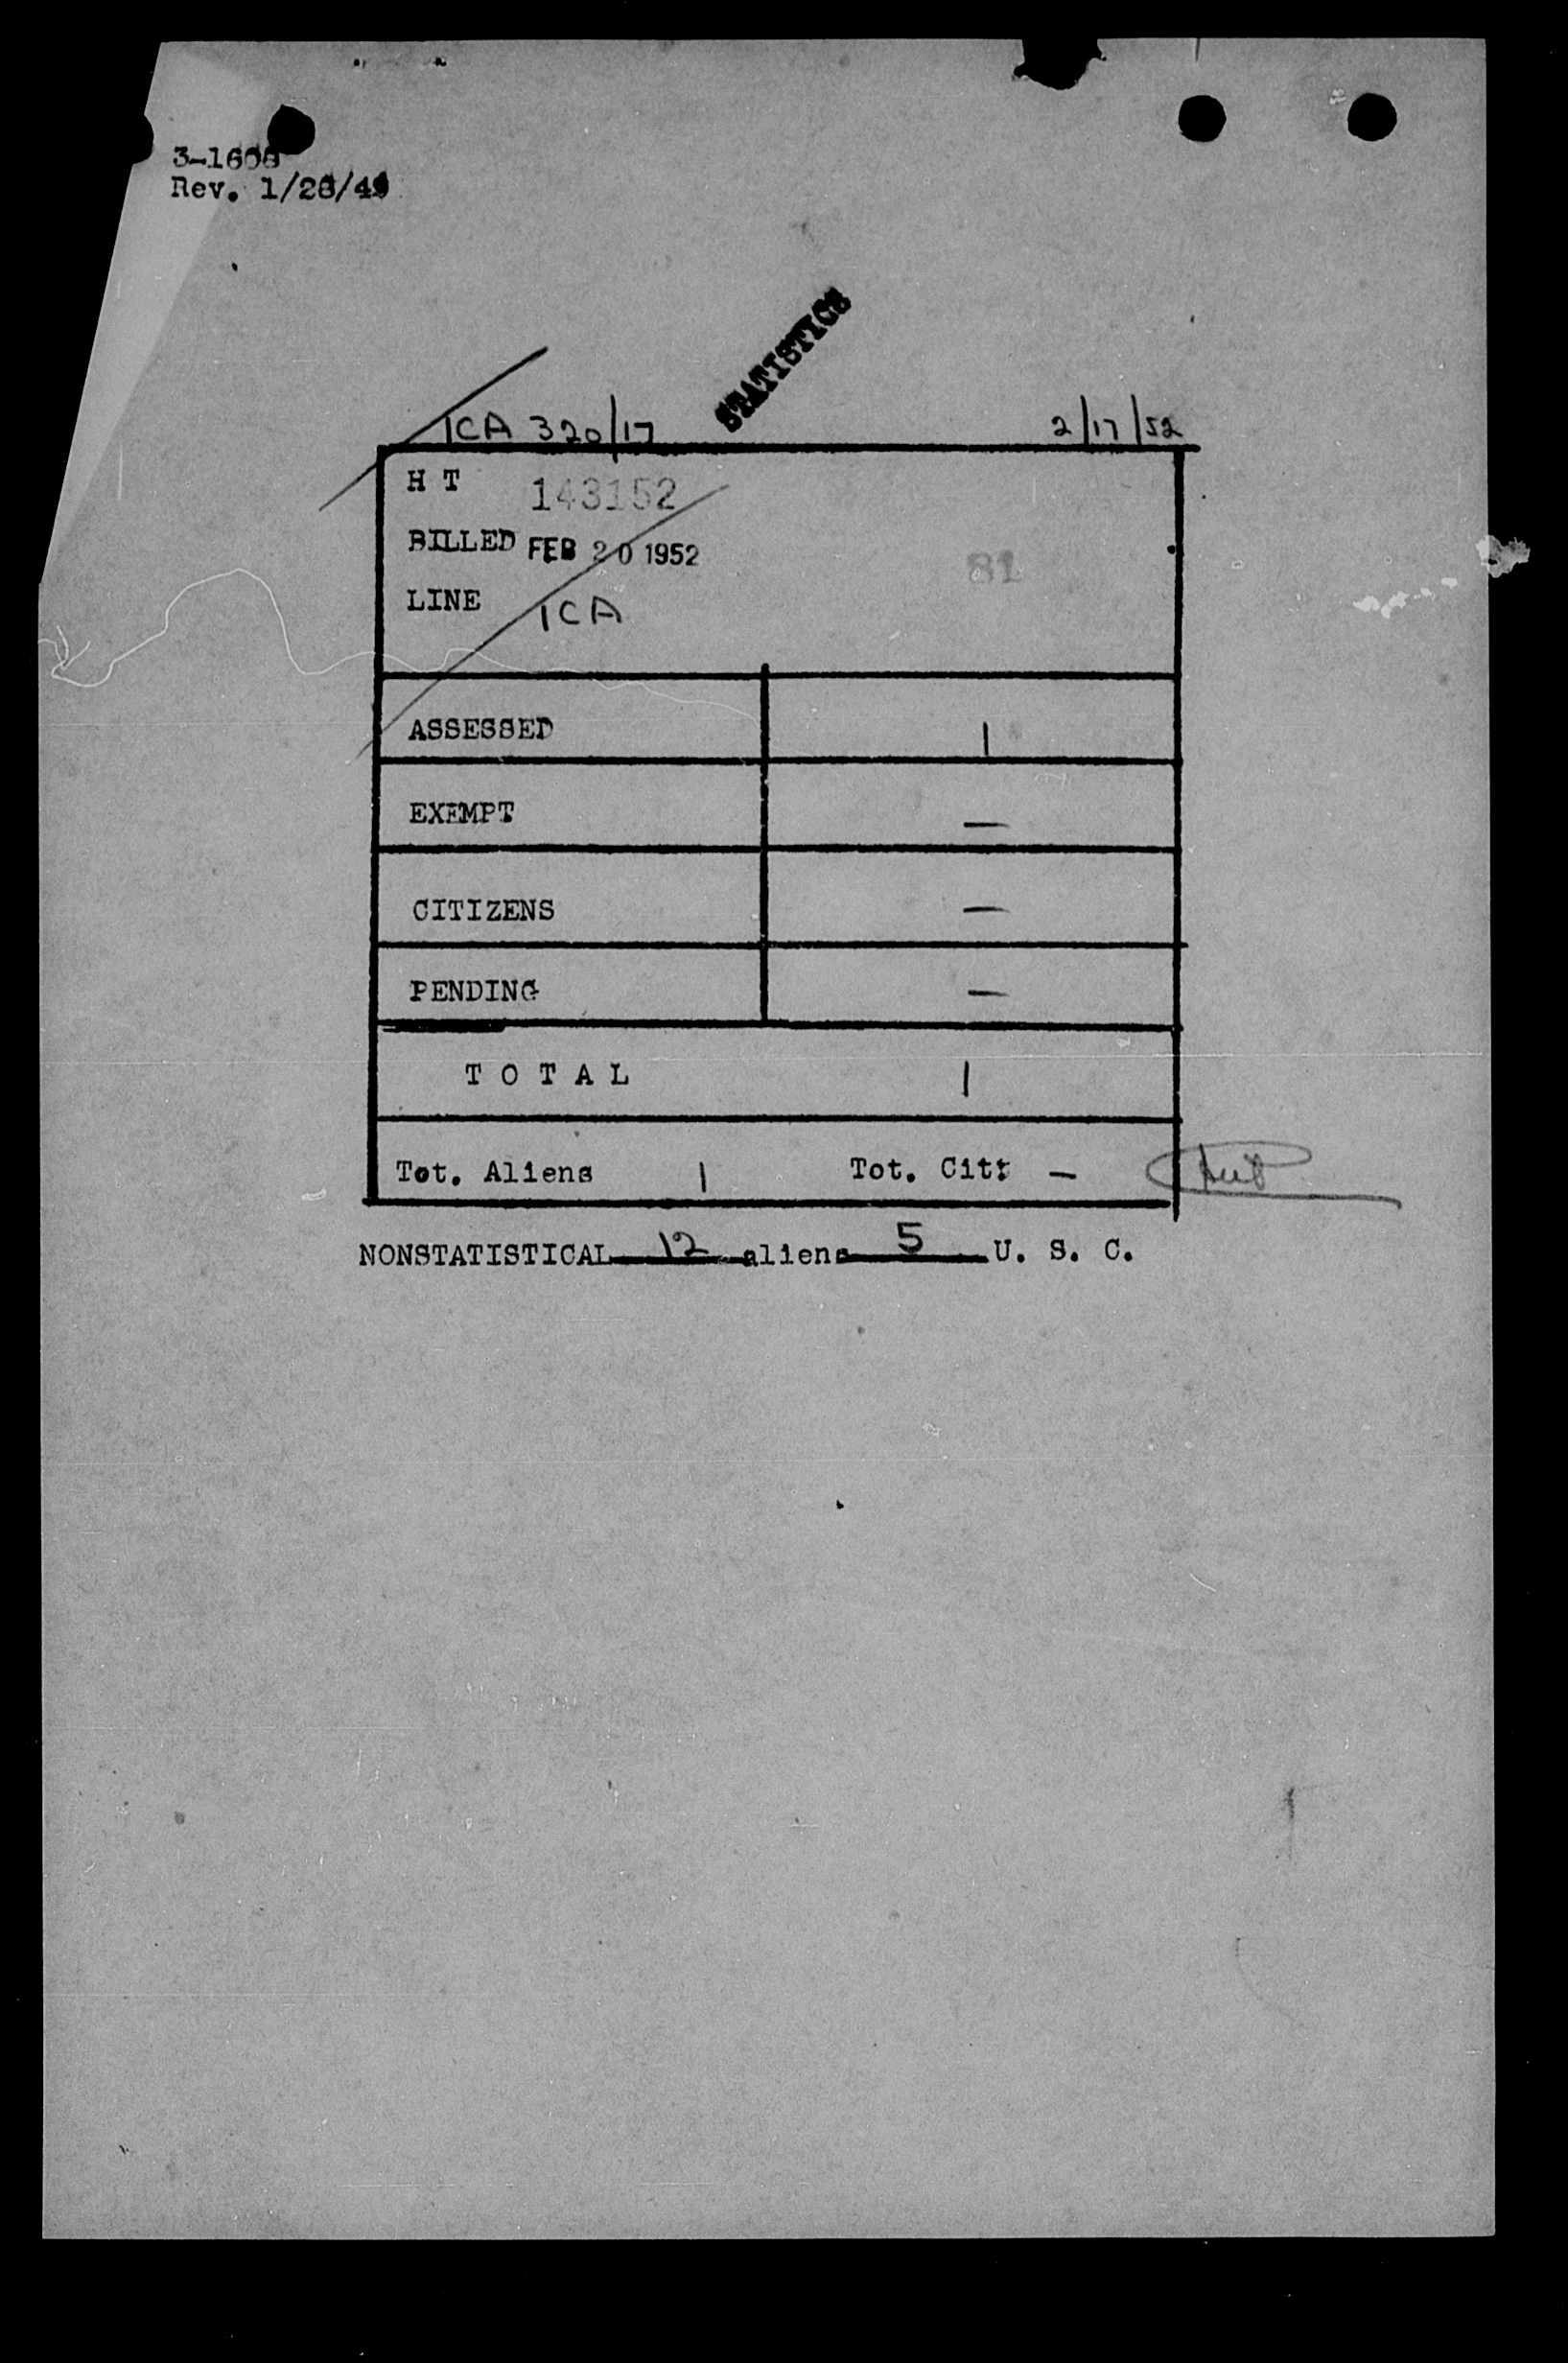 Rev. 1/28/49
STATISTICS
ICA 320/17 2/17/52
H T 143152
BILLED FEB 20 1952 81
LINE ICA
ASSESSED 1
EXEMPT —
CITIZENS —
PENDING —
T O T A L 1
Tot. Aliens 1 Tot. Cit: —
NONSTATISTICAL 12 aliens 5 U. S. C.